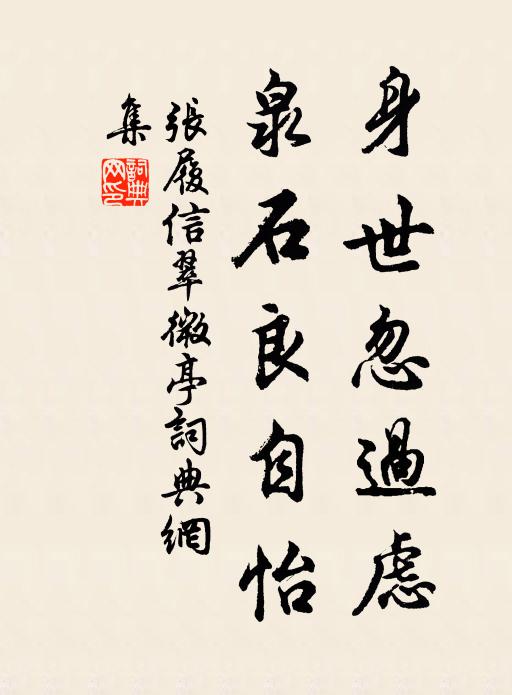 身世忽過慮
泉石良自怡
張履信翠微亭詞典網
集
詞典網印